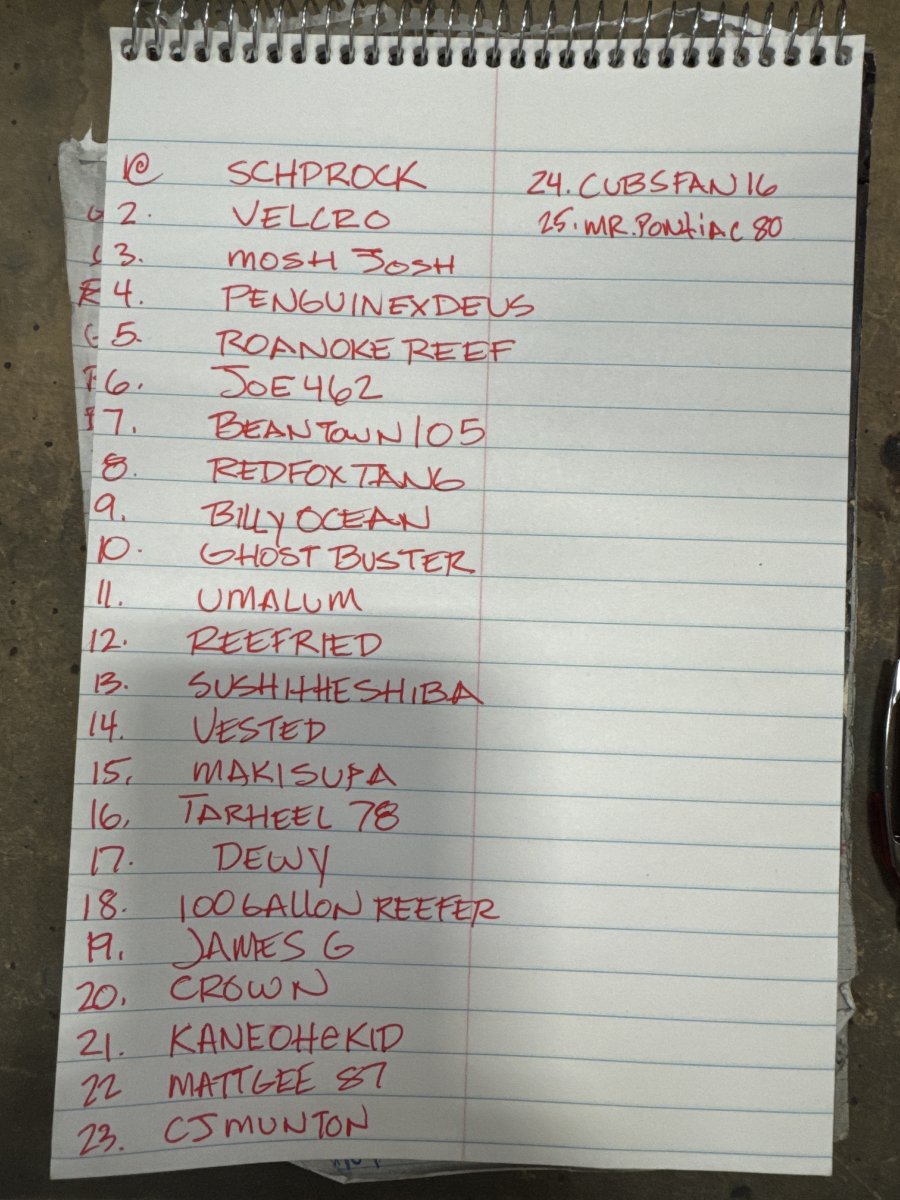 1. SCHPROCK
2. VELCRO
3. MOSH JOSH
4. PENGUINEXDEUS
5. ROANOKE REEF
6. JOE462
7. BEANTOWN105
8. REDFOXTANG
9. BILLY OCEAN
10. GHOST BUSTER
11. UMALUM
12. REEFRIED
13. SUSHITHESHIBA
14. VESTED
15. MAKISUPA
16. TARHEEL 78
17. DEWY
18. 100 GALLON REEFER
19. JAMES G
20. CROWN
21. KANEOHeKID
22 MATTGEE 87
23. CJMUNTON
24. CUBSFAN16
25. MR. PONTiAC 80